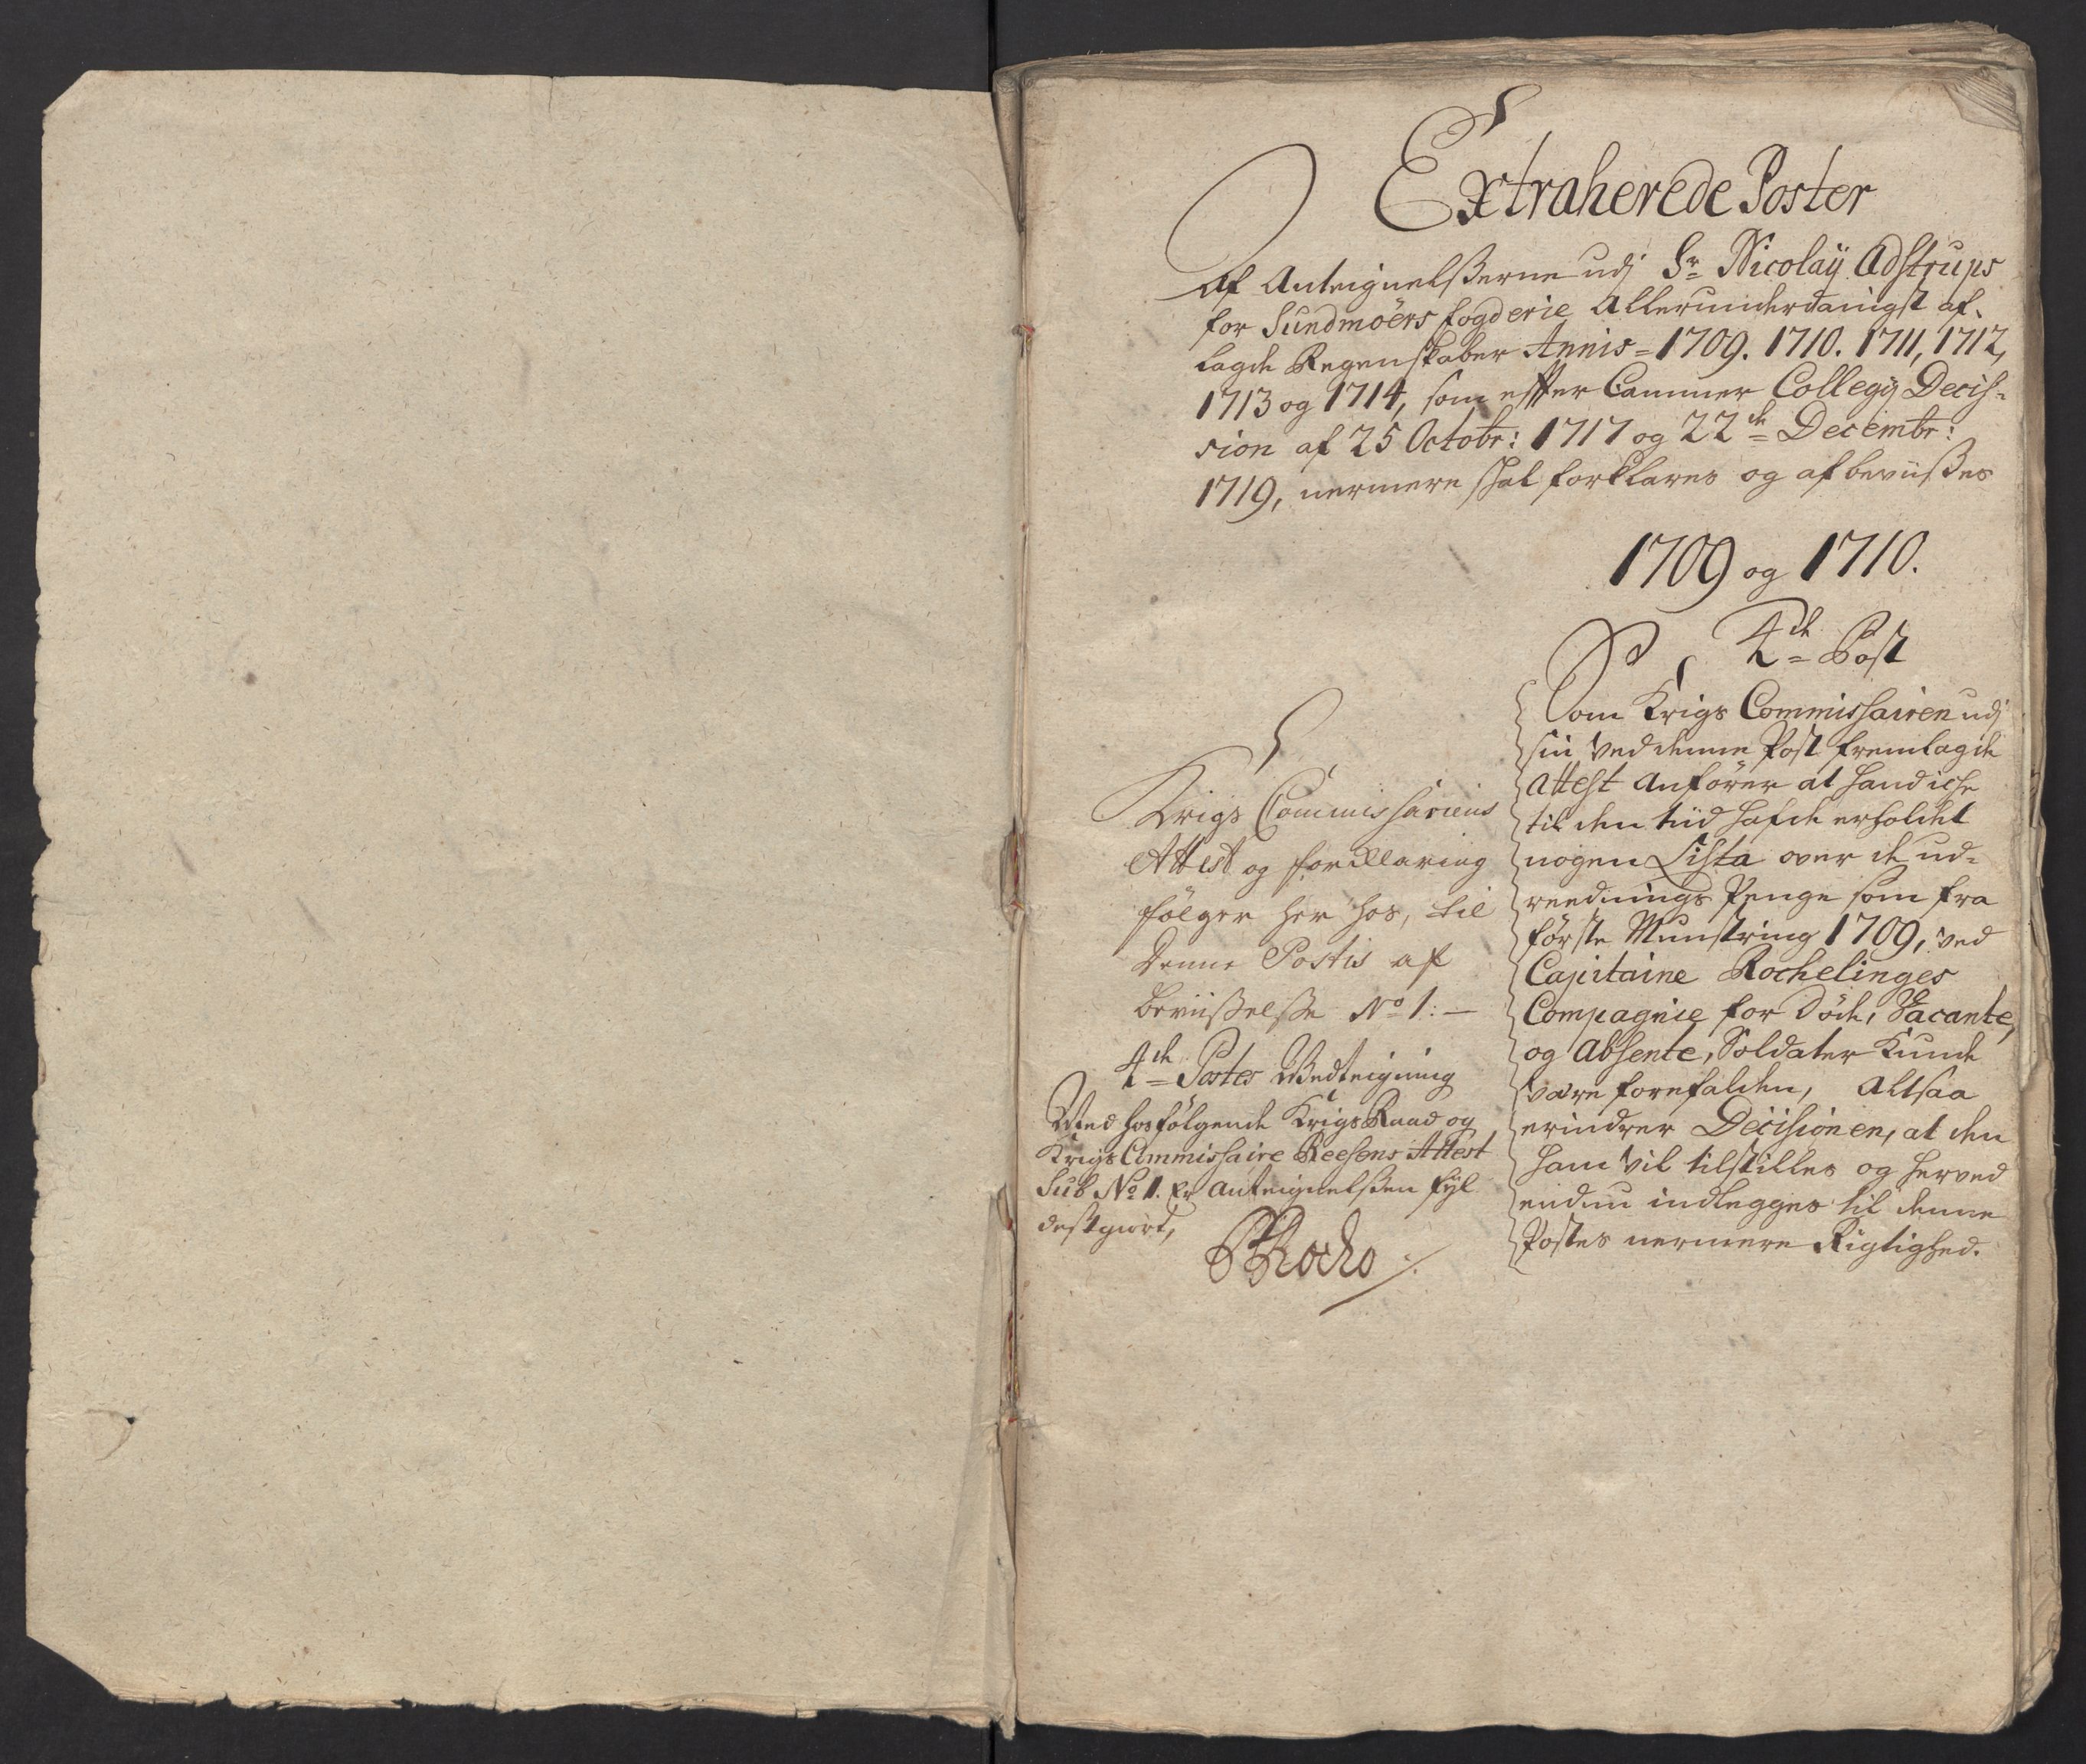 Extraherede Poster
Af Anteignelßerne udj Sr. Nicolaÿ Adstrups
for Sundmöers fogderie Allerunderdanigst af-
lagde Regenskaber Annis = 1709. 1710. 1711, 1712,
1713 og 1714, som effter Cammer Collegij Decis-
sion af 25 Octobr: 1717 og 22de Decembr:
1719, nermere skal forklares og afbeviißes
1709 og 1710.
4de Post
Som Krigs Commissairen udj
sin ved denne Post fremlagde
Attest anförer at hand iche
til den tiid hafde erholdet
nogen Lista over de ud-
reednings Penge som fra
förste Munstring 1709, ved
Capitaine Rochelinges
Compagnie for Döde, Vacante,
og Absente, Soldater kunde
være forefalden, Altsaa
erindrer Decisionen, at den
ham vil tilstilles og herved
endnu indlegges til denne
Postes nermere Rigtighed.
Krigs Commissariens
Attest og forklaring
fölger her hos, til
Denne Postis af
beviißelße No 1: —
4de Postes Wedteigning
Med hosfölgende Krigs Raad og
Krigs Commissaire Reesens Attest
Sub No 1. Er Anteignelßen fyl
destgiort,